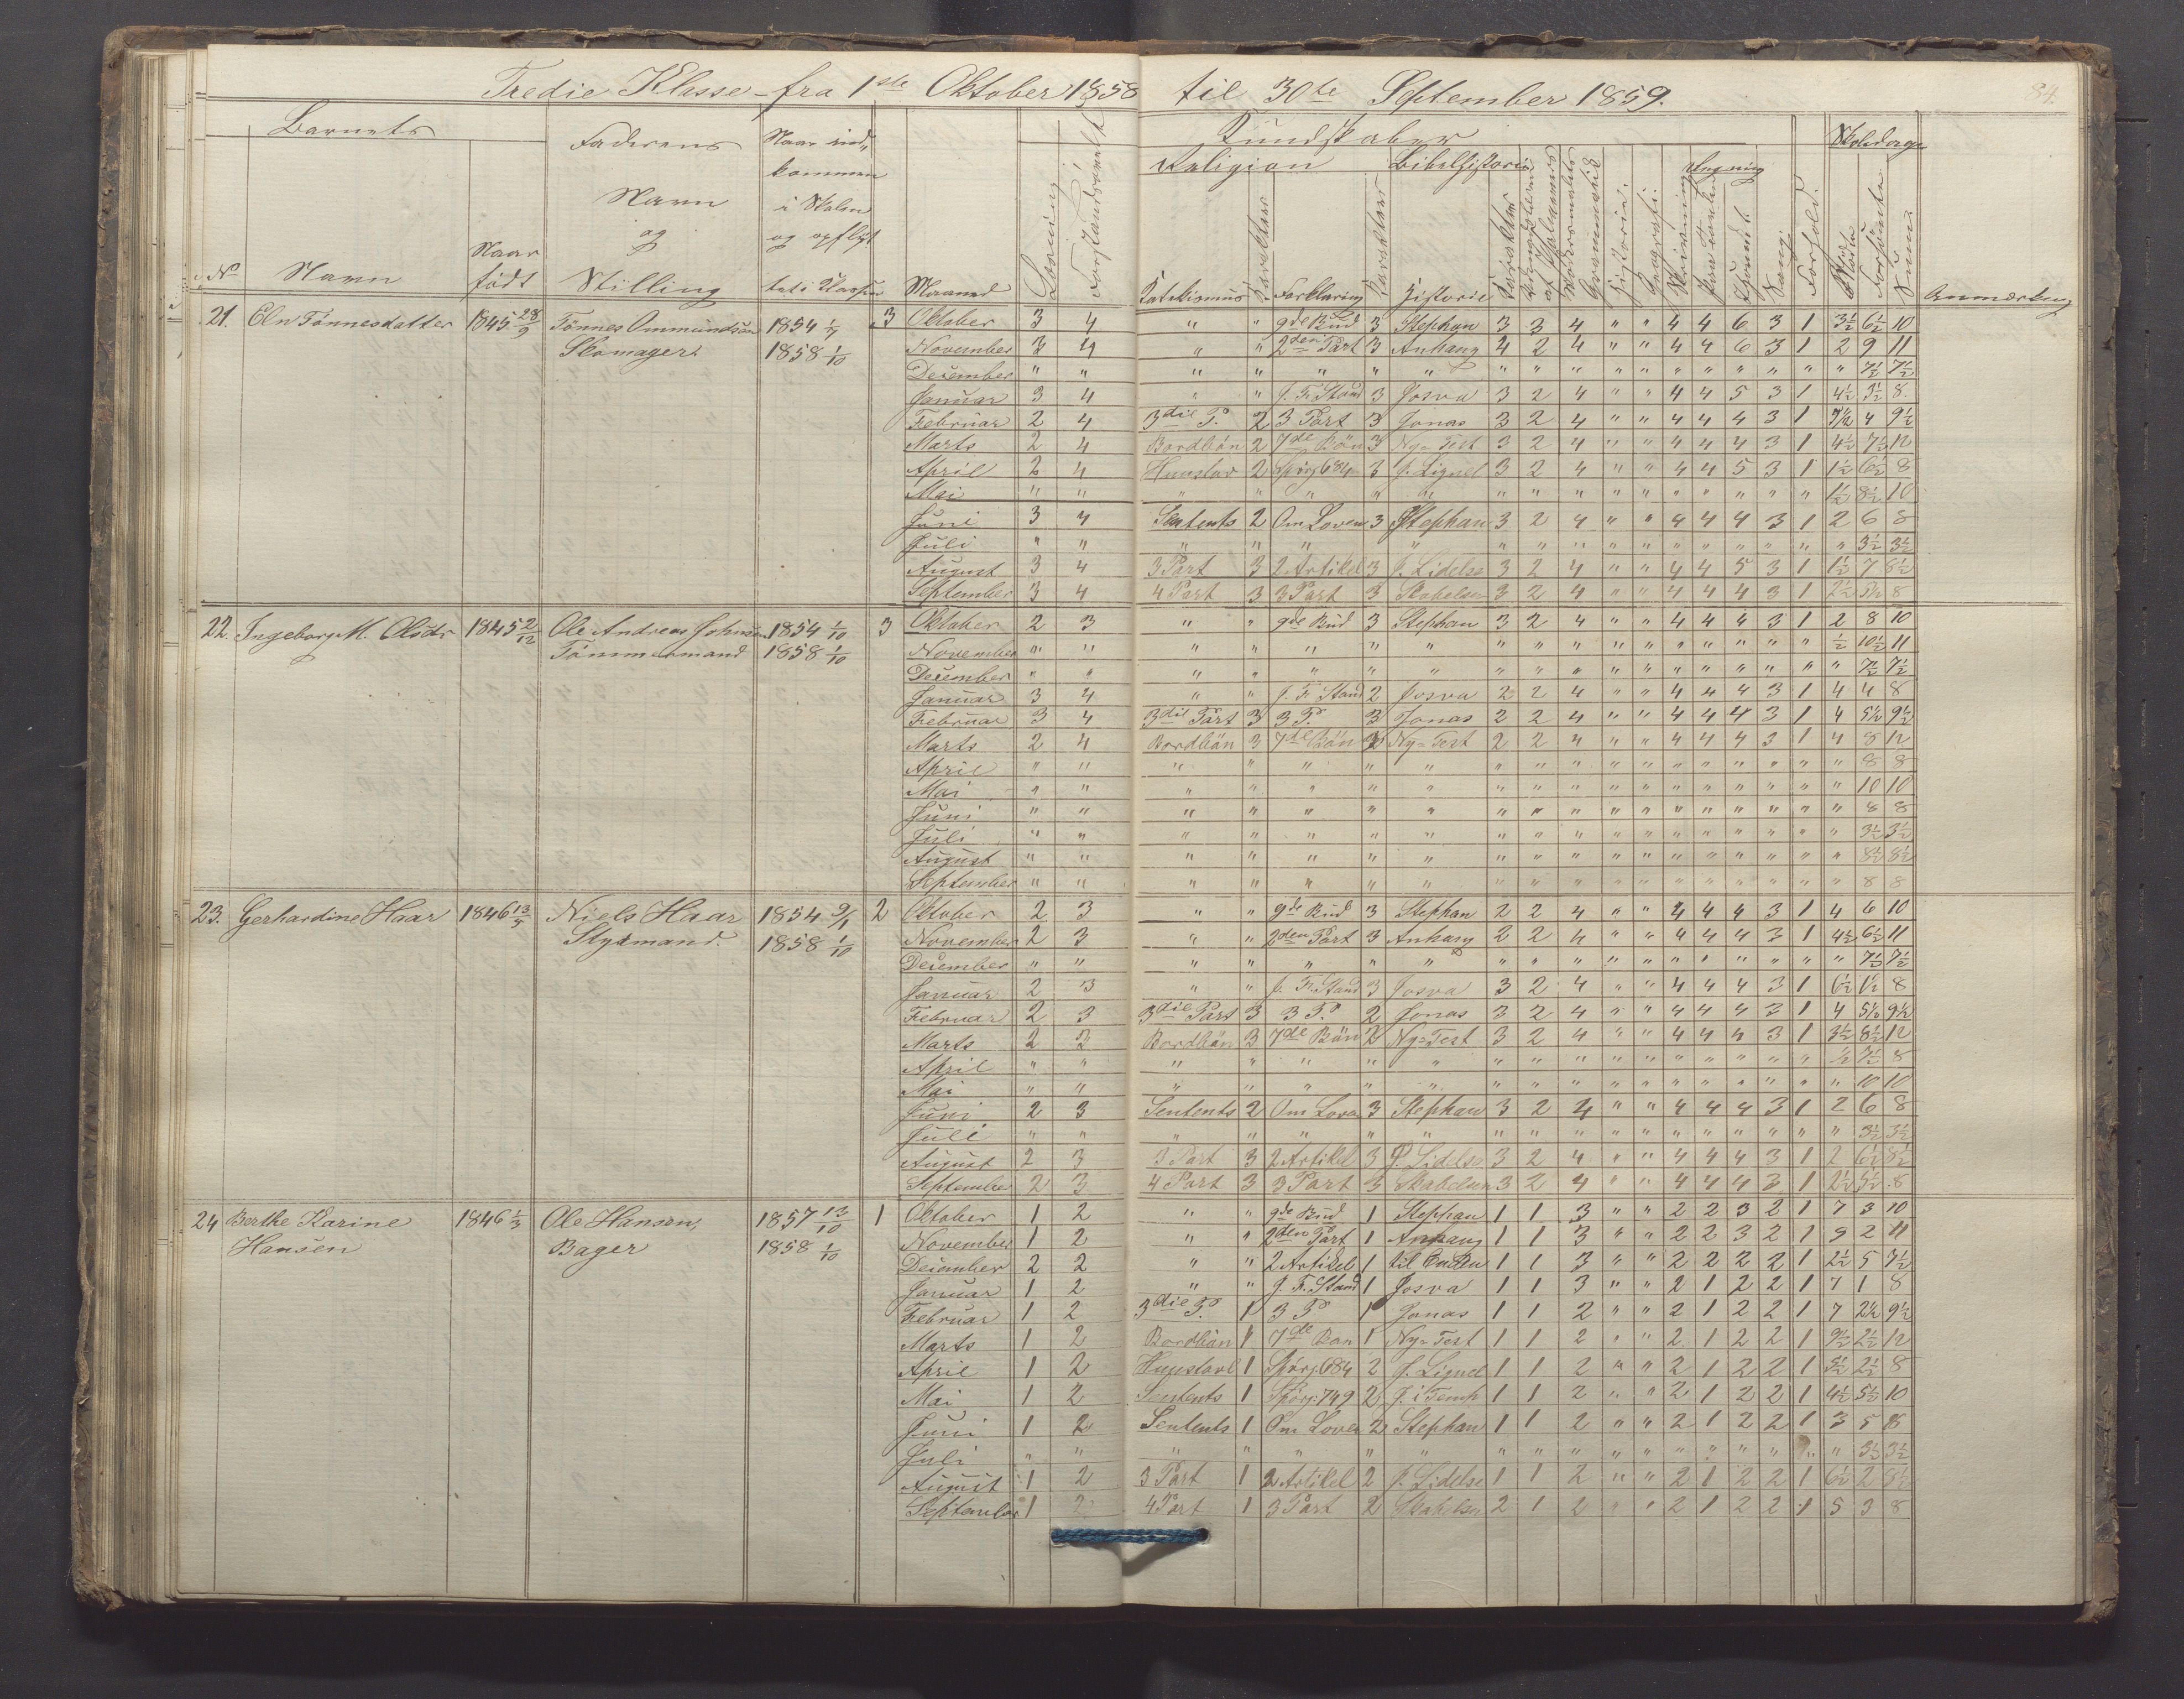 Tredie Klasse fra 1ste Oktober 1858 til 30te September 1859.
84.
Barnets Faderens Naar ind- Kundskaber Skoledage
kommen Religion Bibelhistorie Regning
Navn i Skolen
og og opflyt
No Navn Naar født Stilling tet i Klassen Maaned Katekismus Forklaring Historie Sang Forhold Sum Anmærkning
21. Eln Tønnesdatter 1845 28/9 Tønnes Ommundsen 1854 1/7 3 Oktober 3 4 " " 9de Bud 3 Stephan 3 3 4 " " 4 4 6 3 1 3½ 6½ 10
Skomager. 1858 1/10 November 3 4 " " 2den Part 3 Anhang 4 2 4 " " 4 4 6 3 1 2 9 11
December " " " " " " " " " " " " " " " " " " 7½ 7½
Januar 3 4 " " J. Fr. Stand 3 Josva 3 2 4 " " 4 4 5 3 1 4½ 3½ 8
Februar 2 4 3die P. 2 3 Part 3 Jonas 3 2 4 " " 4 4 4 3 1 4 9½
Marts 2 4 Bordbøn 2 7de Bøn 3 Ny-Test 3 2 4 " " 4 4 4 3 1 4½ 7½ 12
April 2 4 Huustav 2 Spörg 684 3 J. Lignel 3 2 4 " " 4 4 5 3 1 1½ 6½ 8
Mai " " " " " " " " " " " " " " " " " 1½ 8½ 10
Juni 3 4 Sentents 2 Om Loven 3 Stephan 3 2 4 " " 4 4 4 3 1 2 6 8
Juli " " " " " " " " " " " " " " " " " " 3½ 3½
August 3 4 3 Part 3 2 Artikel 3 J. Lidelse 3 2 4 " " 4 4 5 3 1 1½ 7 8½
September 3 4 4 Part 3 3 Part 3 Skabelsen 3 2 4 " " 4 4 4 3 1 2½ 5½ 8
22. Ingeborg M. Olsdr 1845 2/12 Ole Andreas Johnsen 1854 1/10 3 Oktober 2 3 " " 9de Bud 3 Stephan 3 2 4 " " 4 4 4 3 1 2 8 10
Tømmermand 1858 1/10 November " " " " " " " " " " " " " " " " " ½ 10½ 11
December " " " " " " " " " " " " " " " " " " 7½ 7½
Januar 3 4 " " J. Fr. Stand 2 Josva 2 2 4 " " 4 4 4 3 1 4 4 8
Februar 3 4 3die Part 3 3 P. 3 Jonas 2 2 4 " " 4 4 4 3 1 4 5½ 9½
Marts 2 4 Bordbøn 3 7de Bøn 3 Ny-Test 2 2 4 " " 4 4 4 3 1 4 8 12
April " " " " " " " " " " " " " " " " " " 8 8
Mai " " " " " " " " " " " " " " " " " " 10 10
Juni " " " " " " " " " " " " " " " " " " 8 8
Juli " " " " " " " " " " " " " " " " " " 3½ 3½
August " " " " " " " " " " " " " " " " " " 8½ 8½
September " " " " " " " " " " " " " " " " " " 8 8
23. Gerhardine Haar 1846 13/5 Niels Haar 1854 9/1 2 Oktober 2 3 " " 9de Bud 3 Stephan 2 2 4 " " 4 4 4 3 1 4 6 10
Stydmand. 1858 1/10 November 2 3 " " 2den Part 3 Anhang 2 2 4 " " 4 4 4 3 1 4½ 6½ 11
December " " " " " " " " " " " " " " " " " " 7½ 7½
Januar 2 3 " " J. Fr. Stand 3 Josva 3 2 4 " " 4 4 4 3 1 6½ 1½ 8
Februar 2 3 3die Part 3 3 P. 2 Jonas 3 2 4 " " 4 4 4 3 1 4 5½ 9½
Marts 2 3 Bordbøn 3 7de Bøn 2 Ny-Test 3 2 4 " " 4 4 4 3 1 3½ 8½ 12
April " " " " " " " " " " " " " " " " " ½ 7½ 8
Mai " " " " " " " " " " " " " " " " " " 10 10
Juni 2 3 Sentents 2 Om Loven 3 Stephan 3 2 4 " " 4 4 4 3 1 2 6 8
Juli " " " " " " " " " " " " " " " " " " 3½ 3½
August 2 3 3 Part 3 2 Artikel 3 J. Lidelse 3 2 4 " " 4 4 4 3 1 2 6½ 8½
September 2 3 4 Part 3 3 Part 3 Skabelsen 3 2 4 " " 4 4 4 3 1 2½ 5½ 8
24 Berthe Karine 1846 1/3 Ole Hansen, 1857 13/10 1 Oktober 1 2 " " 9de Bud 1 Stephan 1 1 3 " " 2 2 3 2 1 7 3 10
Hansen Bager 1858 1/10 November 1 2 " " 2den Part 1 Anhang 1 1 3 " " 2 2 3 2 1 9 2 11
December 2 2 " " 2 Artikel 1 til Enden 1 1 3 " " 2 2 2 2 1 2½ 5 7½
Januar 1 2 " " J. Fr. Stand 1 Josva 1 1 3 " " 2 1 2 2 1 7 1 8
Februar 1 2 3die P. 1 3 P. 1 Jonas 1 1 2 " " 2 1 2 2 1 7 2½ 9½
Marts 1 2 Bordbøn 1 7de Bøn 1 Ny-Test 1 1 2 " " 2 1 2 2 1 9½ 2½ 12
April 1 2 Huustavl 1 Spörg 684 2 J. Lignel 1 1 2 " " 2 1 2 2 1 5½ 2½ 8
Mai 1 2 Sentents 1 Spörg 749 2 J. i Temp 1 1 2 " " 2 1 2 2 1 4½ 5½ 10
Juni 1 2 Sentents 1 Om Loven 2 Stephan 1 1 2 " " 2 1 2 2 1 3 5 8
Juli " " " " " " " " " " " " " " " " " " 3½ 3½
August 1 2 3 Part 1 2 Artikel 2 J. Lidelse 1 1 2 " " 2 1 2 2 1 6½ 2 8½
September 1 2 4 Part 1 3 Part 2 Skabelsen 2 1 2 " " 2 1 2 2 1 5 3 8